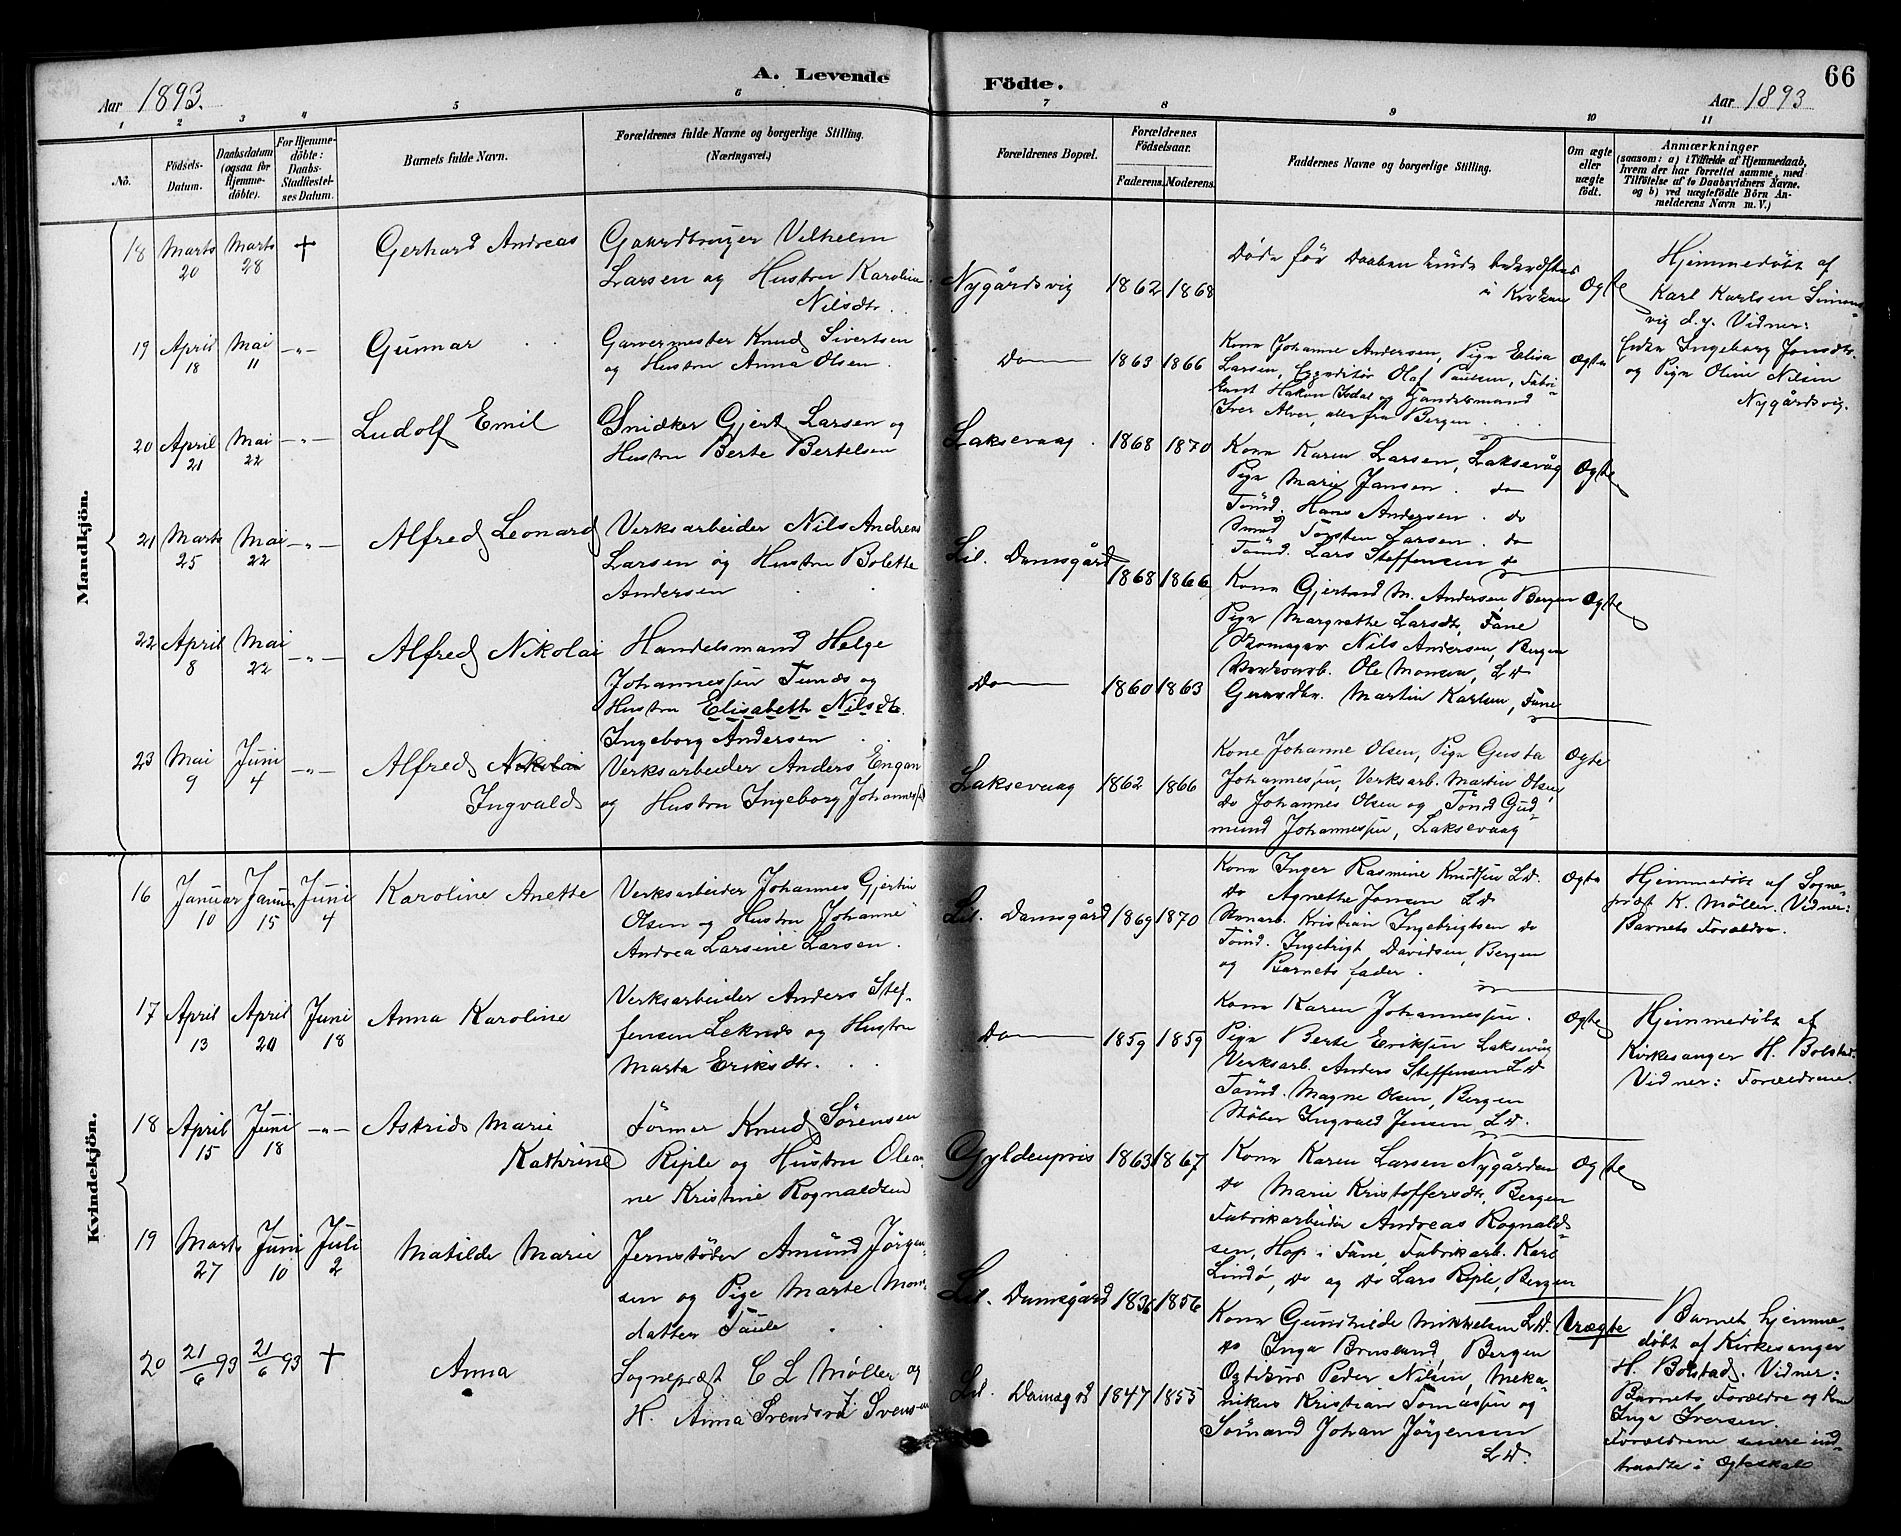 A. Levende Födte.
66
Aar 1893.
Aar 1893
1 2 3 4 5 6 7 8 9 10 11
No.
Födsels-Datum.
Daabsdatum (ogsaa for Hjemme-döbte).
For Hjemme-döbte: Daabs-Stadfæstel-ses Datum.
Barnets fulde Navn.
Forældrenes fulde Navne og borgerlige Stilling.
(Næringsvei.)
Forældrenes Bopæl.
Forældrenes Födselsaar.
Faderens. Moderens.
Faddernes Navne og borgerlige Stilling.
Om ægte eller uægte födt.
Anmærkninger
(saasom: a) i Tilfælde af Hjemmedaab,
hvem der har forrettet samme, med
Tilföielse af to Daabsvidners Navne.
og b) ved uægtefödte Börn An-
melderens Navn m. V.)
Mandkjön.
18 Marts 20 Marts 28 + Gerhard Andreas
Gaardbruger Vilhelm
Larsen og Hustru Karoline
Nilsdtr.
Nygårdsvig 1862 1868
Døde før Daaben
i Kirken
Ogte
Hjemmedøbt af
Karl Karlsen Simons-
vig d.y. Vidner:
Ingeborg Jonsdtr.
og Pige Oline Nilsen
Nygårdsvig.
19 April 18 Mai 11 -"- Gunnar
Garvermester Knud Sivertsen
og Hustru Anna Olsen.
Do 1863 1866
Kone Johanne Andersen, Pige Elisa
Larsen, Expeditør Olaf Paulsen, Fabri-
kant Hakon Isdal og Handelsmand
Iver Alver, alle fra Bergen.
Ogte
20 April 21 Mai 22 -"- Ludolf Emil
Snidker Gjert Larsen og
Hustru Berte Bertelsen
Laksevaag. 1868 1870
Kone Karen Larsen, Laksevåg
Pige Marie Jansen. do
Tømd. Hans Andersen. do
Smed Torsten Larsen. do
Tømd. Lars Steffensen do
Ogte
21 Marts 25 Mai 22 -"- Alfred Leonard
Verksarbeider Nils Andreas
Larsen og Hustru Bolette
Andersen
Lil. Damsgård 1868 1866
Kone Gjertrud M. Andersen, Bergen
Pige Margrethe Larsdtr, Fane
Skomager Nils Andersen, Bergen
Verksarb. Ole Monsen, L D
Gaardbr. Martin Karlsen, Fane
Ogte
22 April 8 Mai 22 -"- Alfred Nikolai
Handelsmand Helge
Johannessen Tunds og
Hustru Elisabeth Nilsdtr.
Ingeborg Andersen
Do 1860 1863
23 Mai 9 Juni 4 -"- Alfred Nikolai
Ingvald
Verksarbeider Anders Engan
og Hustru Ingeborg Johannessd
Laksevaag 1862 1866
Kone Johanne Olsen, Pige Gusta
Johannessen, Verksarb. Martin Olsen,
do Johannes Olsen og Tømd Gud-
mund Johannessen, Laksevaag
Ogte
Kvindekjön.
16 Januar 10 Januar 15 Juni 4 Karoline Anette
Verksarbeider Johannes Gjertin
Olsen og Hustru Johanne
Andrea Larsine Larsen.
Lil. Damsgård 1869 1870
Kone Inger Rasmine Knudsen L D.
do Agnethe Jonsen L D
Kristian Ingebrigtsen do
Tømd. Ingebrigt Davidsen, Bergen
og Barnets fader.
Ogte
Hjemmedøbt af Sogne-
præst K. Møller. Vidner:
Barnets Forældre.
17 April 13 April 20 Juni 18 Anna Karoline
Verksarbeider Anders Stef-
fensen Leknes og Hustru
Marta Eriksdtr.
Do 1859 1859
Kone Karen Johannessen.
Pige Berte Eriksen Laksevåg
Verksarb. Anders Steffensen L D
Tømd. Magne Olsen, Bergen
Støber Ingvald Jensen L D.
Ogte
Hjemmedøbt af
Kirkesanger H. Bolstad.
Vidner: Forældrene.
18 April 15 Juni 18 -"- Astrid Marie
Kathrine
Former Knud Sørensen
Riple og Hustru Olea-
ne Kristine Rognaldsen
Gyldenpris 1863 1867
Kone Karen Larsen Nygården
do Marie Kristoffersdtr, Bergen
Fabrikarbeider Andreas Rognald-
sen, Hop i Fane, Fabrikarb. Karl
Lindø, do og do Lars Riple, Bergen
Ogte
19 Marts 27 Juni 10 Juli 2 Matilde Marie
Jernstøber Amund Jørgen-
sen og Pige Marte Mons-
datter Taule
Lil. Damsgård 1836 1856
Kone Gunhilde Mikkelsen L D.
do Inga Brusland, Bergen
Peder Nilsen, Meka-
nikus Kristian Tomassen og
Sømand Johan Jørgensen
L D.
Uægte
Barnet hjemme-
døbt af Kirkesanger
H. Bolstad. Vidner:
Barnets Forældre og Kone
Inga Iversen.
Forældrene senere ind-
traadte i Ægteskab
20 21/6 93 21/6 93 + Anna
Sognepræst C L Møller og
H. Anna Svendsen
Lil. Damsgd 1847 1855